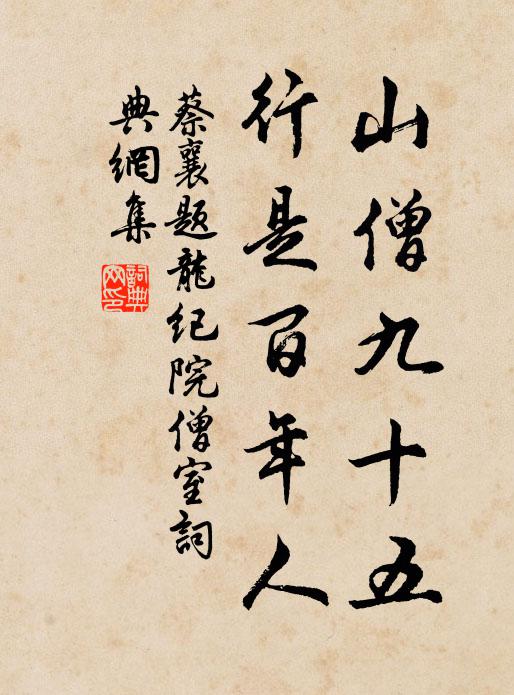 山僧九十五
行是百年人
蔡襄题龍纪院僧室詞
典網集
詞典
网印